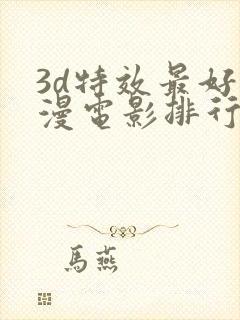 3d特效最好
漫電影排行
馬燕